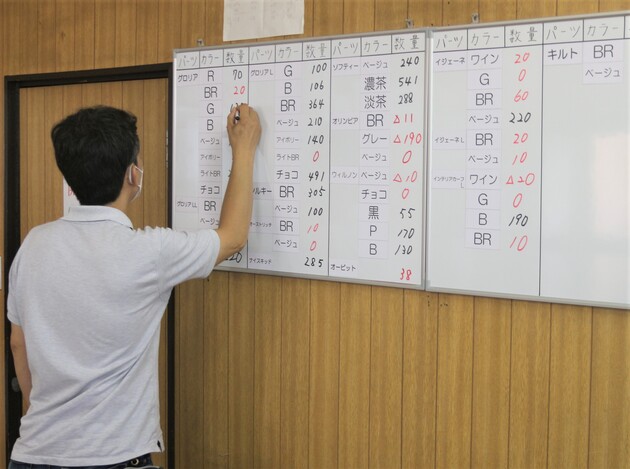 パーツ カラー 数量
グロリア R 70
BR 20
G
B
ベージュ
アイボリー
ライトBR
チョコ
グロリアLL BR
ベージュ
220
パーツ カラー 数量
グロリアL G 100
B 106
BR 364
ベージュ 210
アイボリー 140
ライトBR 0
チョコ 491
BR 305
ベージュ 100
BR 10
ベージュ 0
285
パーツ カラー 数量
ソフティー ベージュ 240
濃茶 541
淡茶 288
オリンピア BR △11
グレー △190
ベージュ 0
ウィルソン ベージュ △10
チョコ 0
黒 55
P 170
B 130
オービット 38
パーツ カラー 数量
イジェーネ ワイン 20
G 0
BR 60
ベージュ 220
イジェーネL BR 20
ベージュ 10
ワイン △20
G 0
B 190
BR 10
パーツ カラー
キルト BR
ベージュ